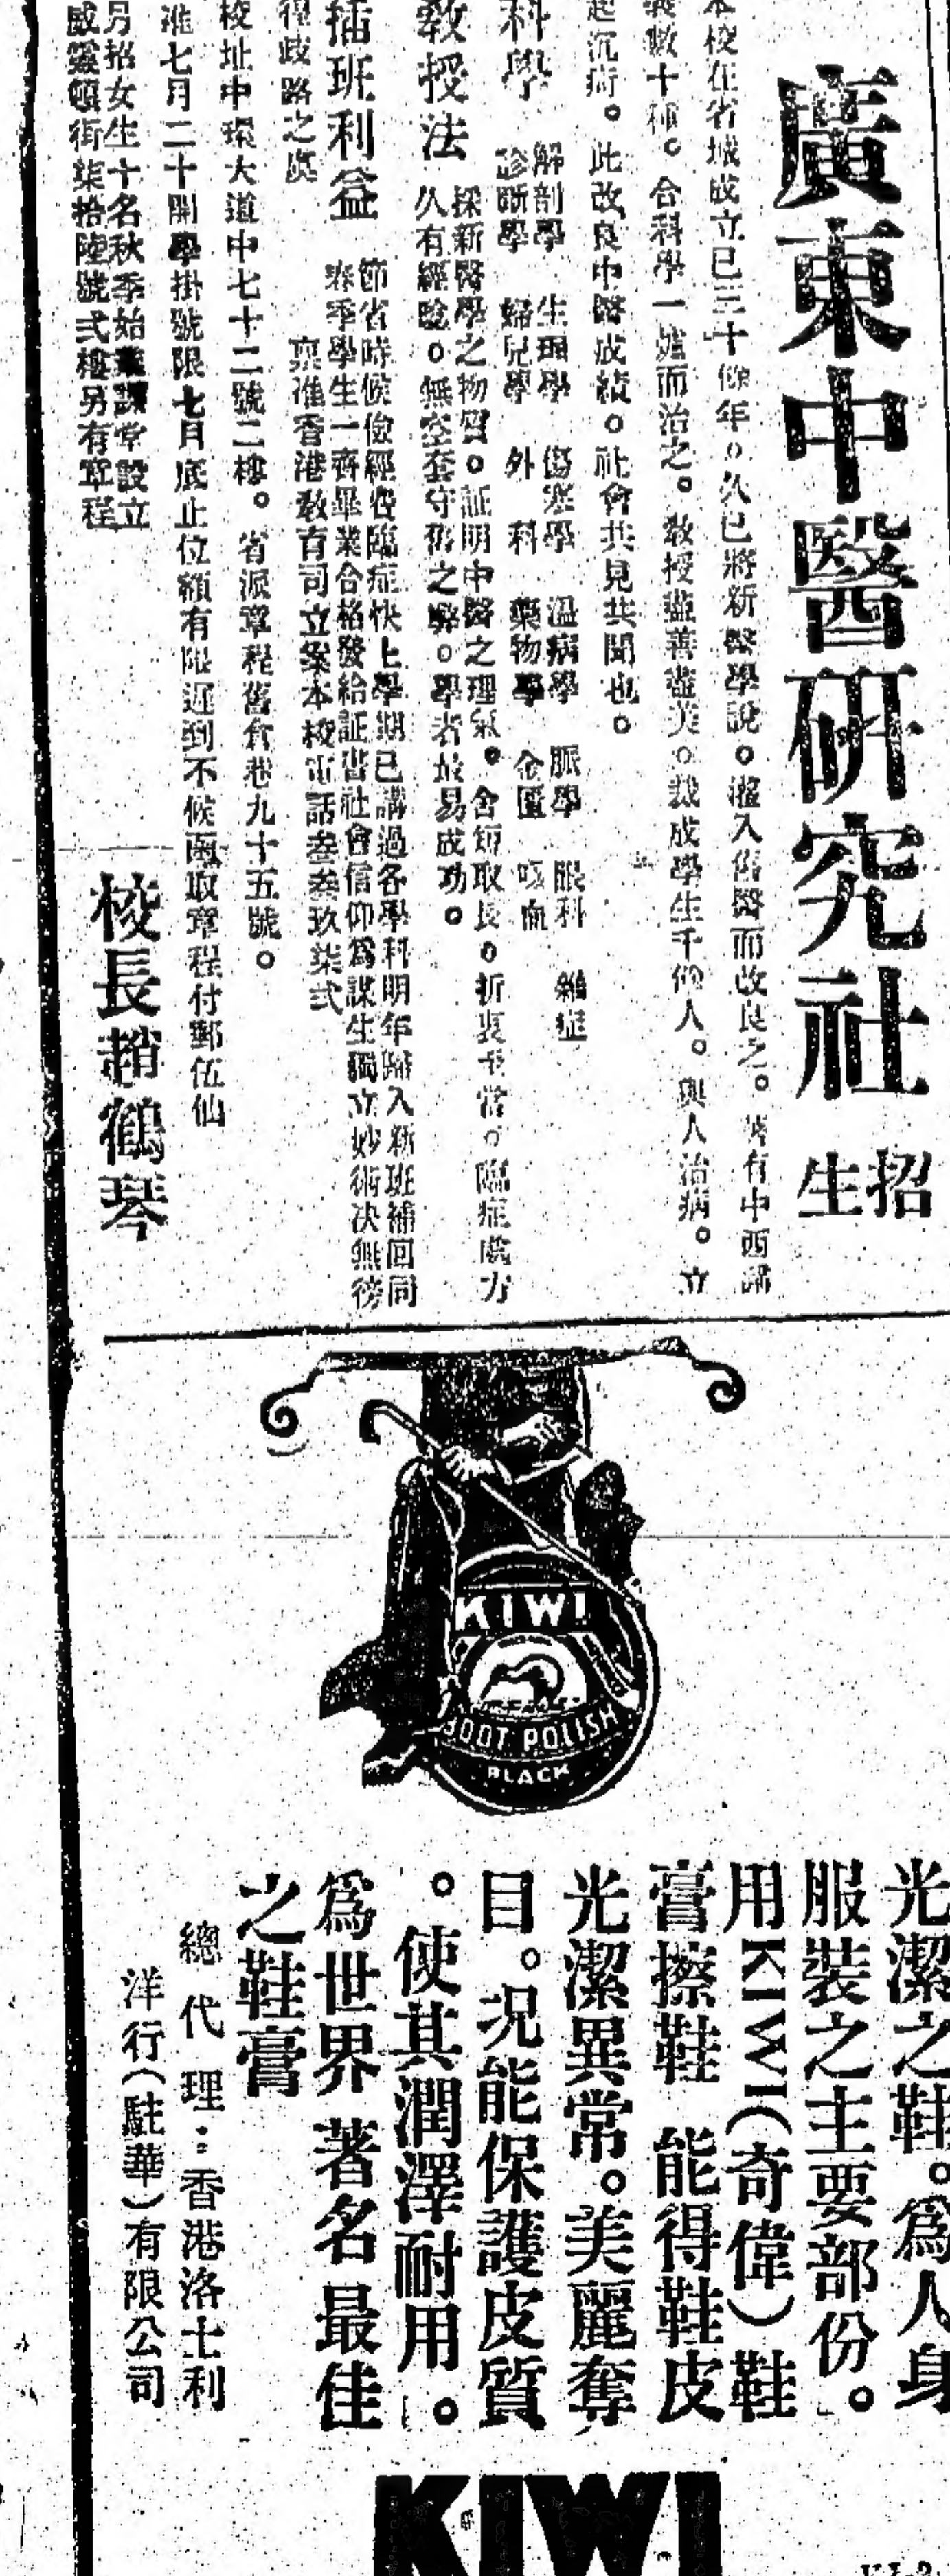 廣東中醫研究社
招生
本校在省城成立已三十餘年。久已將新醫學說。灌入舊醫而改良之。著有中西
數十種。合科學一爐而治之。教授盡善盡美。裁成學生千餘人。與人治病。立
起沉疴。此改良中醫成績。社會共見共聞也。
科學
解剖學 生理學 傷寒學 溫病學 脈學 眼科 雜症
診斷學 婦兒學 外科 藥物學 金匱 咳血
教授法
採新醫學之物質。証明中醫之理氣。舍短取長。折衷至當。臨症處方
久有經驗。無空套守舊之弊。學者最易成功。
插班利益
節省時候儉經費臨症快上學期已講過各學科明年歸入新班補回同
春季學生一齊畢業合格發給証書社會信仰為謀生獨立妙術決無徬
徨歧路之虞
稟准香港教育司立案本校電話叁叁玖柒弍
校址中環大道中七十二號二樓。省派章程舊倉巷九十五號。
准七月二十開學掛號限七月底止位額有限遲到不候函取章程付郵伍仙
月招女生十名秋季始業課堂設立
威靈頓街柒拾陸號弍樓另有章程
校長趙鶴琴
KIWI
BOOT POLISH
BLACK
光潔之鞋。為人身
服裝之主要部份。
用KIWI(奇偉)鞋
膏擦鞋 能得鞋皮
光潔異常。美麗奪
目。況能保護皮質
。使其潤澤耐用。
為世界著名最佳
之鞋膏
總代理：香港洛士利
洋行(駐華)有限公司
KIWI